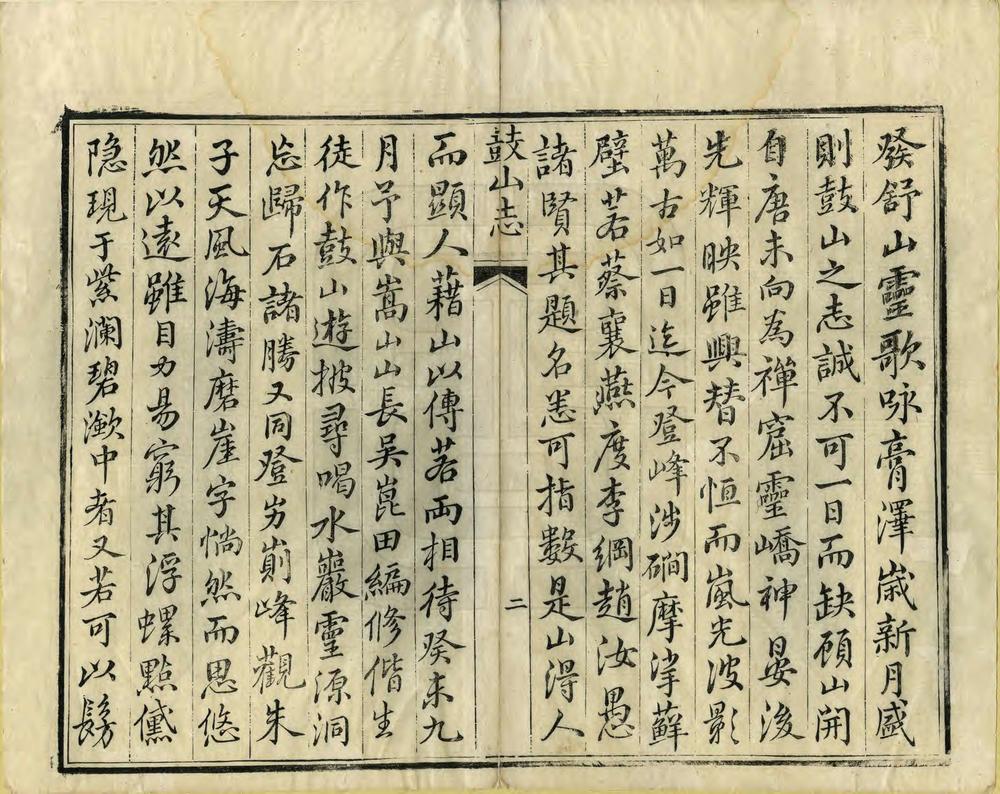 發舒山靈歌咏膏澤歲新月盛
則鼓山之志誠不可一日而缺顧山開
自唐末向為禪窟靈嶠神晏後
先輝映雖興替不恒而嵐光波影
萬古如一日迄今登峰涉磵摩挲蘚
壁若蔡襄燕度李綱趙汝愚
諸賢其題名悉可指數是山得人
鼓山志
二
而顯人藉山以傳若兩相待癸未九
月予與嵩山山長吳崑田編修偕生
徒作鼓山遊披尋喝水巖靈源洞
忘歸石諸勝又同登屴崱峰觀朱
子天風海濤磨崖字惝然而思悠
然以遠雖目力易窮其浮螺點黛
隐現于紫瀾碧潊中者又若可以髣